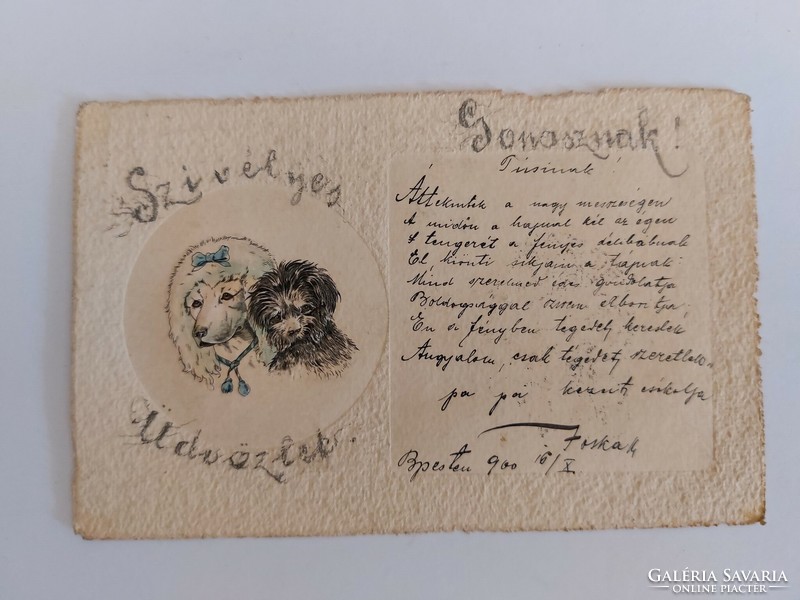 Szivélyes
Üdvözlet.
Gonosznak!
Tusinak!
Áttekintek a nagy messzeségen
A midőn a hajnal kél az égen
S tengerét a fényes délibábnak
El kiönti síkjain a tájnak
Mind szerelmed édes gondolatja
Boldogsággal szívem elborítja
Én a fényben tégedet kereslek
Angyalom, csak tégedet szeretlek.
pa pá kezeit csókolja
Bpesten 900 16/X
GALÉRIA SAVARIA
ONLINE PIACTÉR